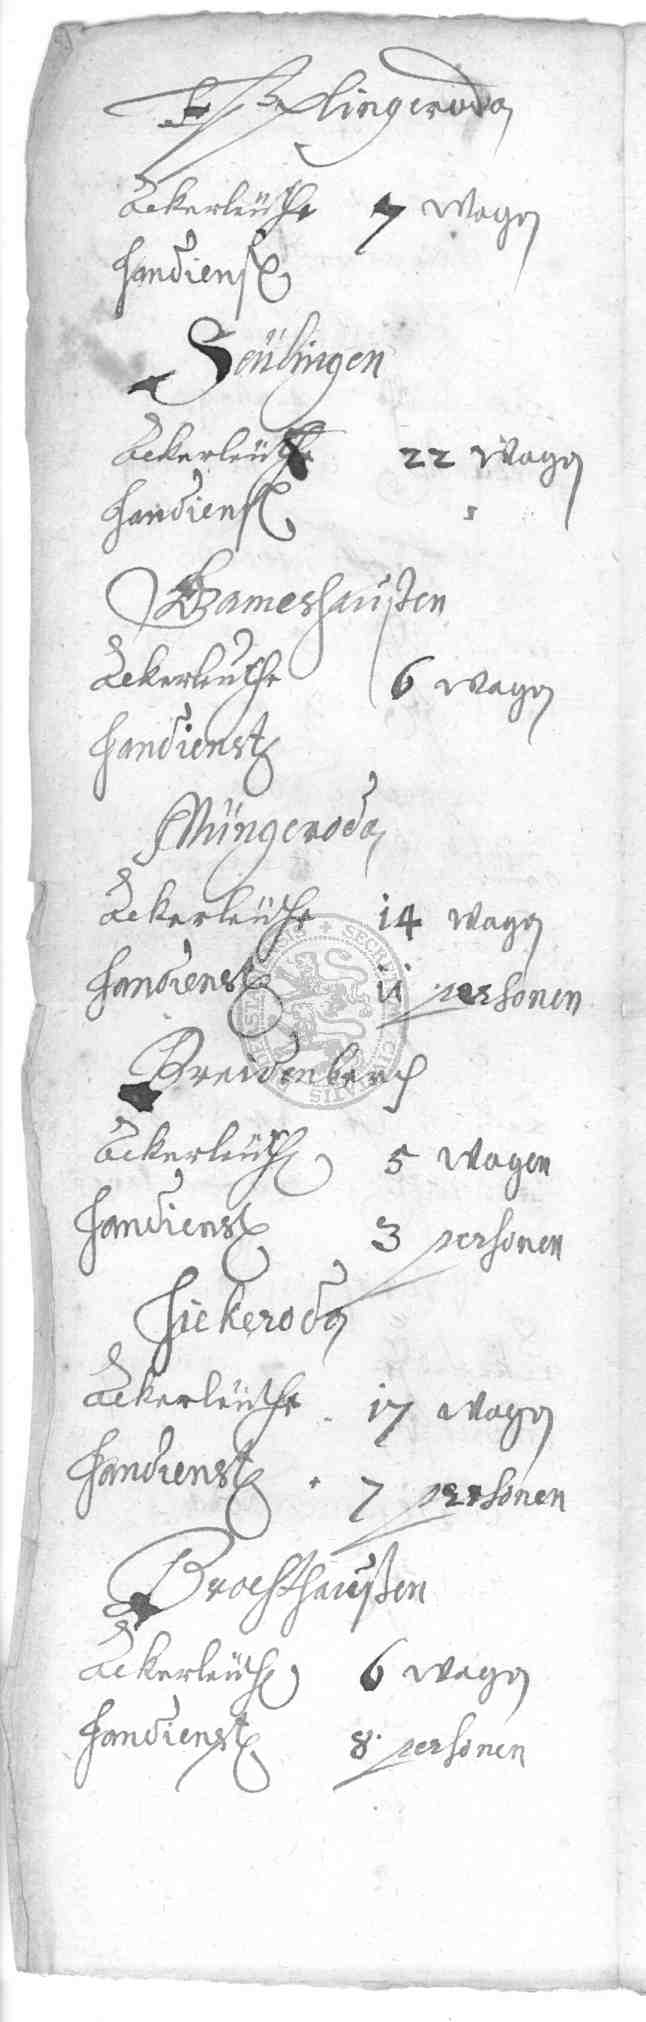 Teistlingeroda
Ackerleüthe 7 Wagen
Handienst
Seülingen
Ackerleüthe 22 Wagen
Handienst
Germeshausten
Ackerleuthe 6 wagen
Handienst
Müngeroda
Ackerleüthe 14 wagen
Handienst 11 personen
Breidenberch
Ackerleüthe 5 wagen
Handienst 3 personen
Fickeroda
Ackerleüthe 17 wagen
Handienst 7 personen
Brochthausten
Ackerleüthe 6 wagen
Handienst 8 personen